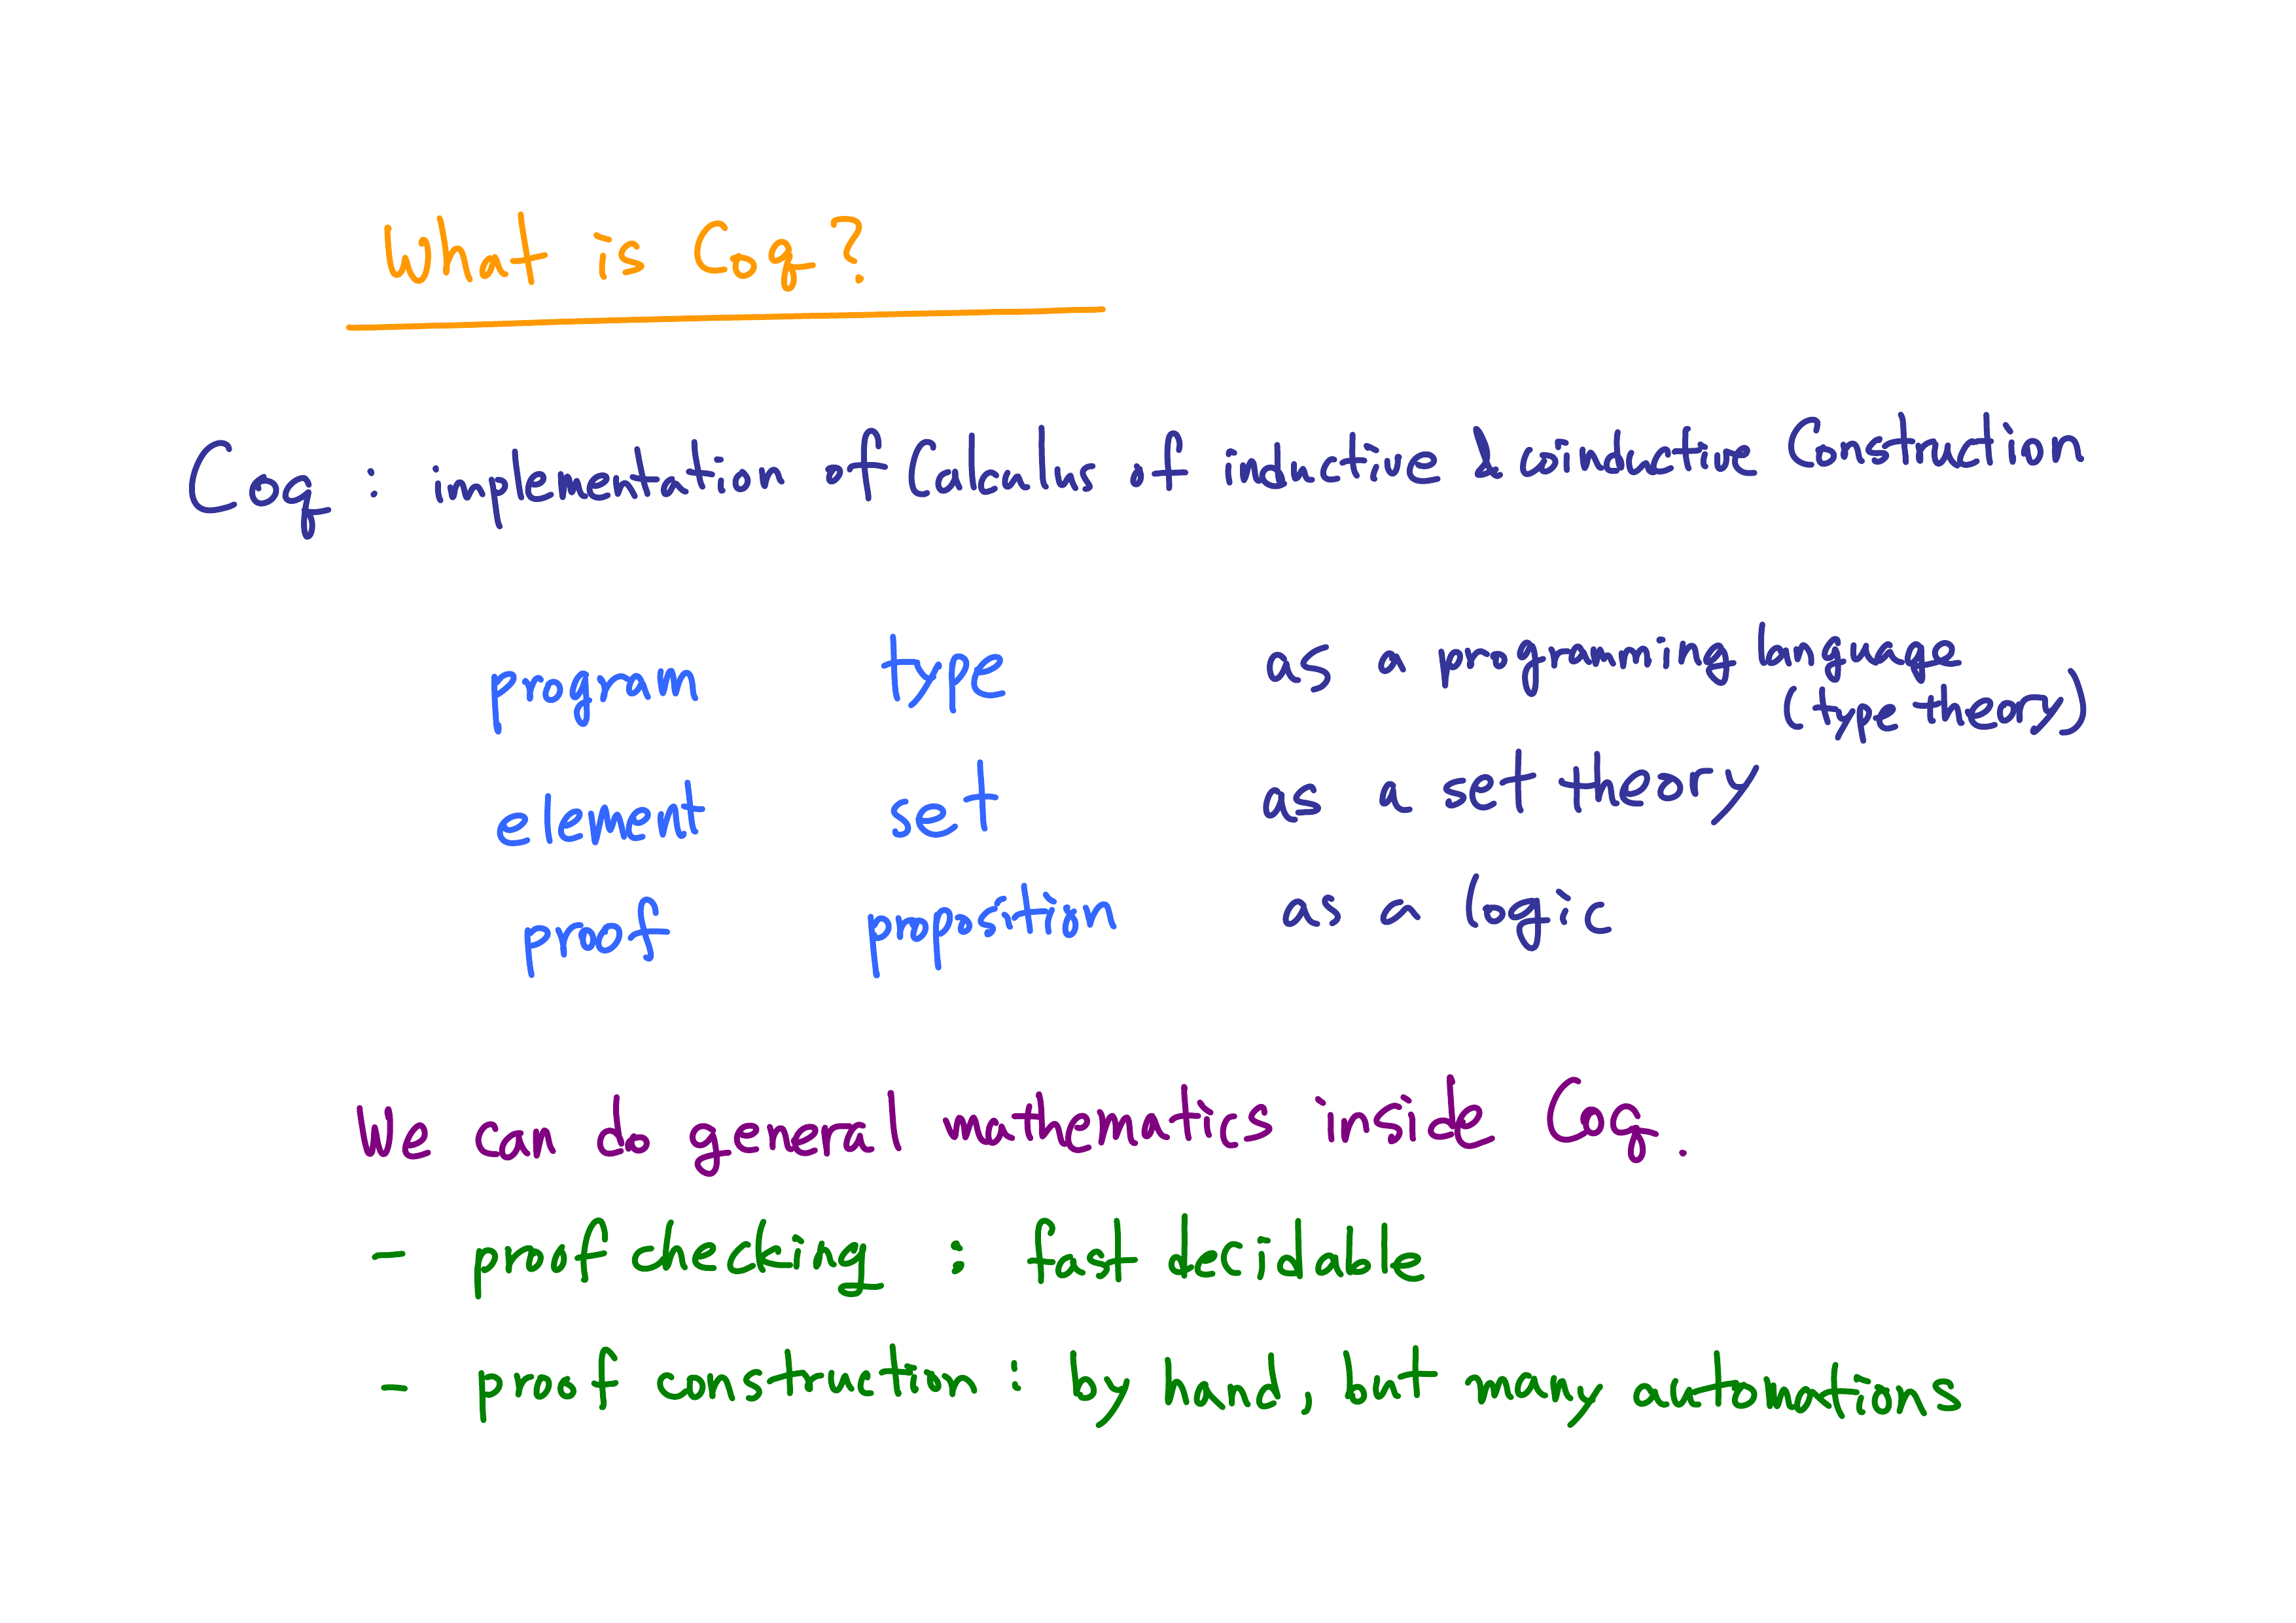 What is Coq?
Coq : implementation of Calculus of inductive & coinductive Construction
program type as a programming language
(type theory)
element set as a set theory
proof proposition as a logic
We can do general mathematics inside Coq.
- proof checking : fast decidable
- proof construction : by hand, but many automations